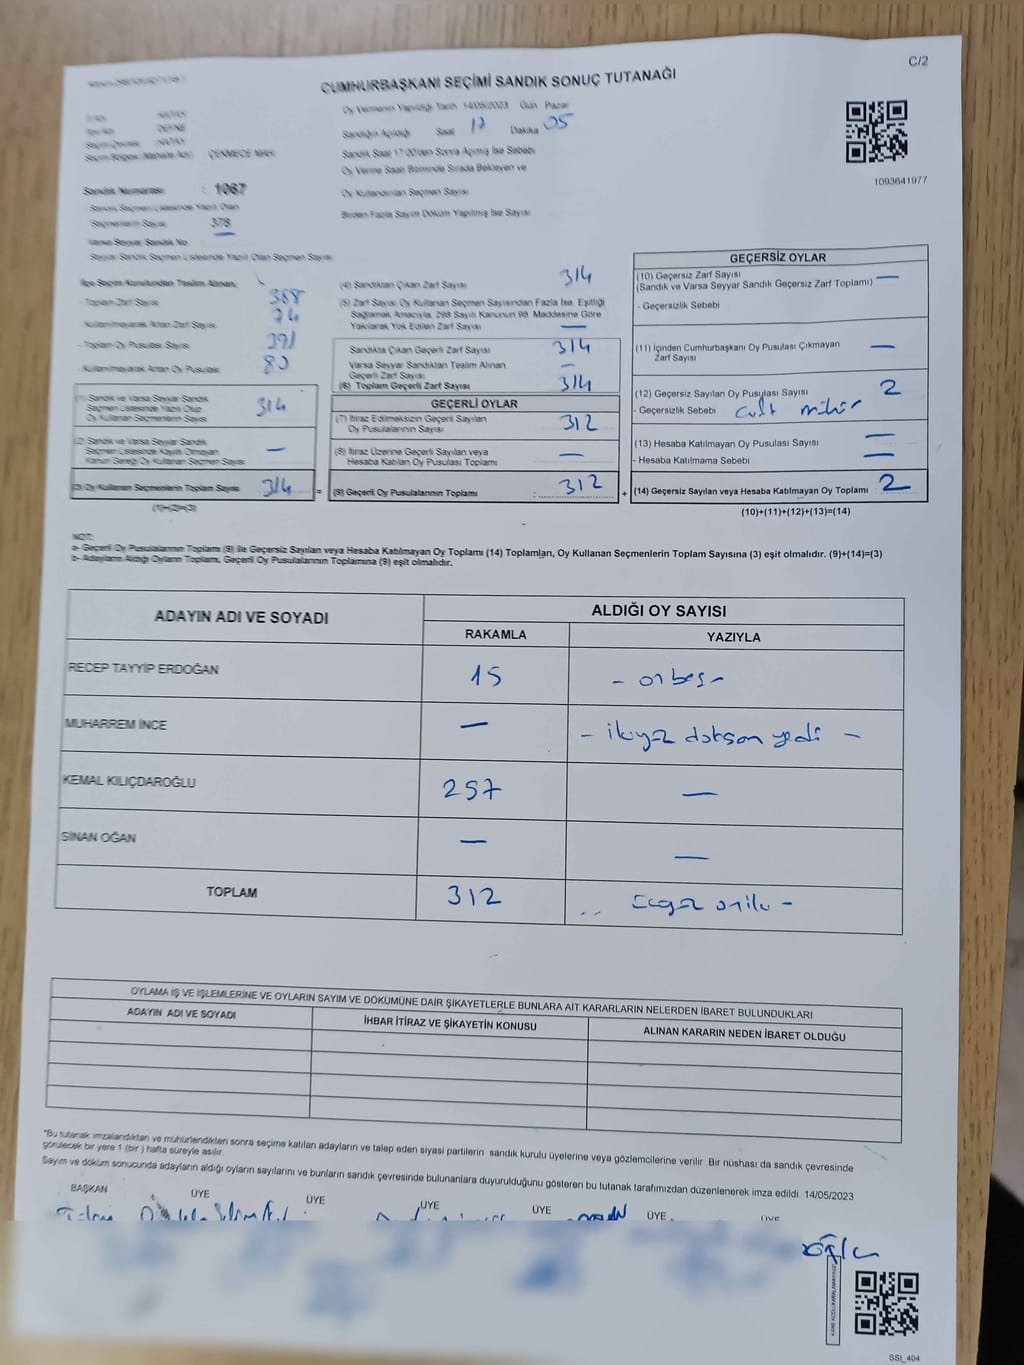 C/2
CUMHURBAŞKANI SEÇİMİ SANDIK SONUÇ TUTANAĞI
HATAY
DEFNE
HATAY
ÇEKMECE MAH.
Sandık Numarası : 1067
Sandık Seçmen Listesinde Yazılı Olan
Seçmenlerin Sayısı 378
Varsa Seyyar Sandık No
Seyyar Sandık Seçmen Listesinde Yazılı Olan Seçmen Sayısı
Oy Vermenin Yapıldığı Tarih 14/05/2023 Gün Pazar
Sandığın Açıldığı Saat 17 Dakika 05
Sandık Saat 17:00'den Sonra Açılmış İse Sebebi
Oy Verme Saati Bitiminde Sırada Bekleyen ve
Oy Kullandırılan Seçmen Sayısı
Birden Fazla Sayım Döküm Yapılmış İse Sayısı
1093641977
İlçe Seçim Kurulundan Teslim Alınan;
- Toplam Zarf Sayısı 388
- Kullanılmayarak Artan Zarf Sayısı 74
- Toplam Oy Pusulası Sayısı 391
- Kullanılmayarak Artan Oy Pusulası 80
(1) Sandık ve Varsa Seyyar Sandık
Seçmen Listesinde Yazılı Olup
Oy Kullanan Seçmenlerin Sayısı 314
(2) Sandık ve Varsa Seyyar Sandık
Seçmen Listesinde Kayıtlı Olmayan
Kanun Gereği Oy Kullanan Seçmen Sayısı —
(3) Oy Kullanan Seçmenlerin Toplam Sayısı 314 =
(1)+(2)=(3)
(4) Sandıktan Çıkan Zarf Sayısı 314
(5) Zarf Sayısı Oy Kullanan Seçmen Sayısından Fazla İse, Eşitliği
Sağlamak Amacıyla, 298 Sayılı Kanunun 98. Maddesine Göre
Yakılarak Yok Edilen Zarf Sayısı —
Sandıkta Çıkan Geçerli Zarf Sayısı 314
Varsa Seyyar Sandıktan Teslim Alınan
Geçerli Zarf Sayısı —
(6) Toplam Geçerli Zarf Sayısı 314
GEÇERLİ OYLAR
(7) İtiraz Edilmeksizin Geçerli Sayılan
Oy Pusulalarının Sayısı 312
(8) İtiraz Üzerine Geçerli Sayılan veya
Hesaba Katılan Oy Pusulası Toplamı —
(9) Geçerli Oy Pusulalarının Toplamı : 312 +
GEÇERSİZ OYLAR
(10) Geçersiz Zarf Sayısı —
(Sandık ve Varsa Seyyar Sandık Geçersiz Zarf Toplamı)
- Geçersizlik Sebebi
(11) İçinden Cumhurbaşkanı Oy Pusulası Çıkmayan
Zarf Sayısı —
(12) Geçersiz Sayılan Oy Pusulası Sayısı 2
- Geçersizlik Sebebi çift mühür
(13) Hesaba Katılmayan Oy Pusulası Sayısı —
- Hesaba Katılmama Sebebi —
(14) Geçersiz Sayılan veya Hesaba Katılmayan Oy Toplamı 2
(10)+(11)+(12)+(13)=(14)
NOT:
a- Geçerli Oy Pusulalarının Toplamı (9) ile Geçersiz Sayılan veya Hesaba Katılmayan Oy Toplamı (14) Toplamları, Oy Kullanan Seçmenlerin Toplam Sayısına (3) eşit olmalıdır. (9)+(14)=(3)
b- Adayların Aldığı Oyların Toplamı, Geçerli Oy Pusulalarının Toplamına (9) eşit olmalıdır.
ADAYIN ADI VE SOYADI ALDIĞI OY SAYISI
RAKAMLA YAZIYLA
RECEP TAYYİP ERDOĞAN 15 - onbeş -
MUHARREM İNCE — - ikiyüz doksan yedi -
KEMAL KILIÇDAROĞLU 297 —
SİNAN OĞAN — —
TOPLAM 312 üçyüz oniki -
OYLAMA İŞ VE İŞLEMLERİNE VE OYLARIN SAYIM VE DÖKÜMÜNE DAİR ŞİKAYETLERLE BUNLARA AİT KARARLARIN NELERDEN İBARET BULUNDUKLARI
ADAYIN ADI VE SOYADI İHBAR İTİRAZ VE ŞİKAYETİN KONUSU ALINAN KARARIN NEDEN İBARET OLDUĞU
*Bu tutanak imzalandıktan ve mühürlendikten sonra seçime katılan adayların ve talep eden siyasi partilerin sandık kurulu üyelerine veya gözlemcilerine verilir. Bir nüshası da sandık çevresinde
görülecek bir yere 1 (bir) hafta süreyle asılır.
Sayım ve döküm sonucunda adayların aldığı oyların sayılarını ve bunların sandık çevresinde bulunanlara duyurulduğunu gösteren bu tutanak tarafımızdan düzenlenerek imza edildi. 14/05/2023
BAŞKAN ÜYE ÜYE ÜYE ÜYE ÜYE ÜYE
SSI_404